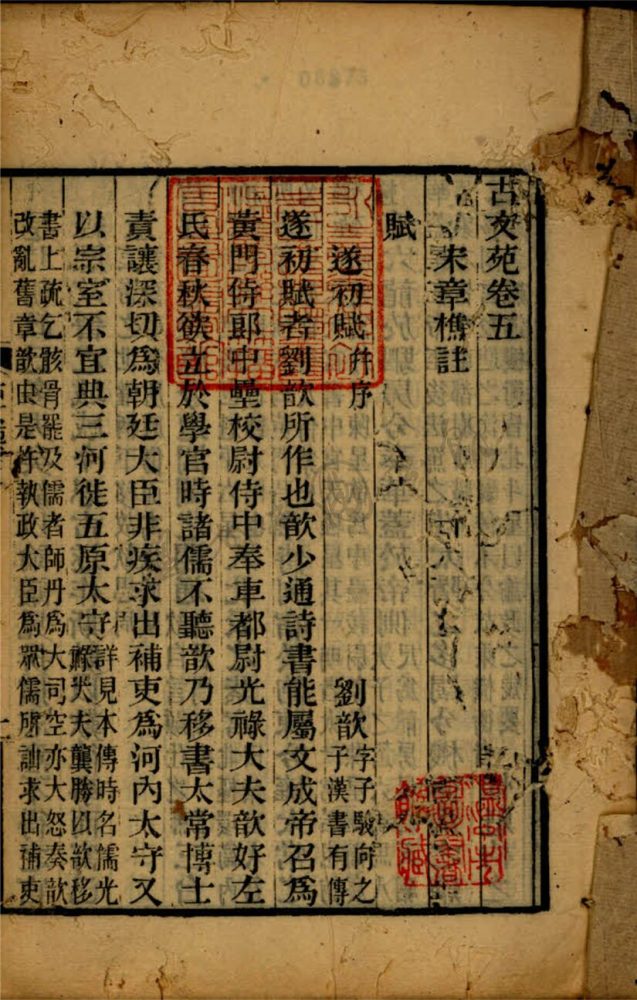 古文苑卷五
宋章樵註
賦
遂初賦并序 劉歆字子駿向之子漢書有傳
遂初賦者劉歆所作也歆少通詩書能屬文成帝召爲
黃門侍郎中壘校尉侍中奉車都尉光祿大夫歆好左
氏春秋欲立於學官時諸儒不聽歆乃移書太常博士
責讓深切爲朝廷大臣非疾求出補吏爲河內太守又
以宗室不宜典三河徙五原太守詳見本傳時名儒光祿大夫龔勝以歆移
書上疏乞骸骨罷及儒者師丹爲大司空亦大怒奏歆
改亂舊章歆由是忤執政大臣爲眾儒所訕求出補吏